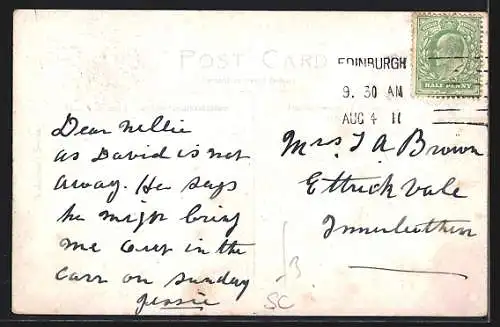 POST CARD
EDINBURGH
9. 30 AM
AUG 4 11
HALF PENNY
Dear Nellie
as David is not
away. He says
he might bring
me over in the
carr on Sunday
Jessie
Mrs J A Brown
Ettrick Vale
Innerleithen
SC